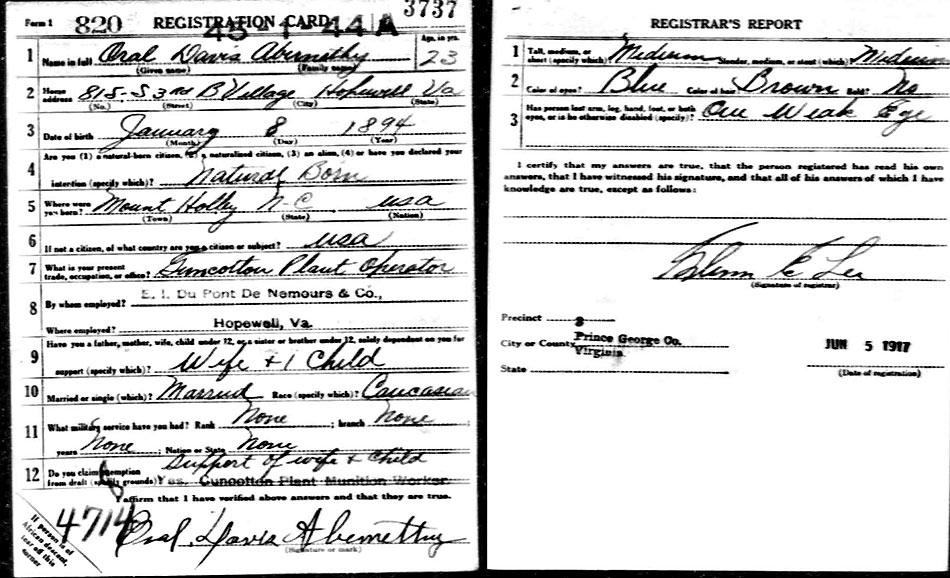 Form 1 820 REGISTRATION CARD 3737
45-1-44 A
1 Name in full Oral Davis Abernethy Age, in yrs. 23
(Given name) (Family name)
2 Home address 815-S 3rd B Village Hopewell Va
(No.) (Street) (City) (State)
3 Date of birth January 8 1894
(Month) (Day) (Year)
4 Are you (1) a natural-born citizen, (2) a naturalized citizen, (3) an alien, (4) or have you declared your
intention (specify which)? Natural Born
5 Where were you born? Mount Holly N C USA
(Town) (State) (Nation)
6 If not a citizen, of what country are you a citizen or subject? USA
7 What is your present trade, occupation, or office? Guncotton Plant Operator
8 By whom employed? E. I. Du Pont De Nemours & Co.,
Where employed? Hopewell, Va.
9 Have you a father, mother, wife, child under 12, or a sister or brother under 12, solely dependent on you for
support (specify which)? Wife + 1 Child
10 Married or single (which)? Married Race (specify which)? Caucasian
11 What military service have you had? Rank None ; branch None ;
years None ; Nation or State None
12 Do you claim exemption from draft (specify grounds)? Support of wife + Child
Yes. Guncotton Plant Munition Worker
I affirm that I have verified above answers and that they are true.
4714 Oral Davis Abernethy
(Signature or mark)
If person is of
African descent,
tear off this
corner
REGISTRAR'S REPORT
1 Tall, medium, or short (specify which)? Medium Slender, medium, or stout (which)? Medium
2 Color of eyes? Blue Color of hair? Brown Bald? No
3 Has person lost arm, leg, hand, foot, or both eyes, or is he otherwise disabled (specify)? One Weak Eye
I certify that my answers are true, that the person registered has read his own
answers, that I have witnessed his signature, and that all of his answers of which I have
knowledge are true, except as follows:
Glenn E Lee
(Signature of registrar)
Precinct 3
City or County Prince George Co.
Virginia
State
JUN 5 1917
(Date of registration)